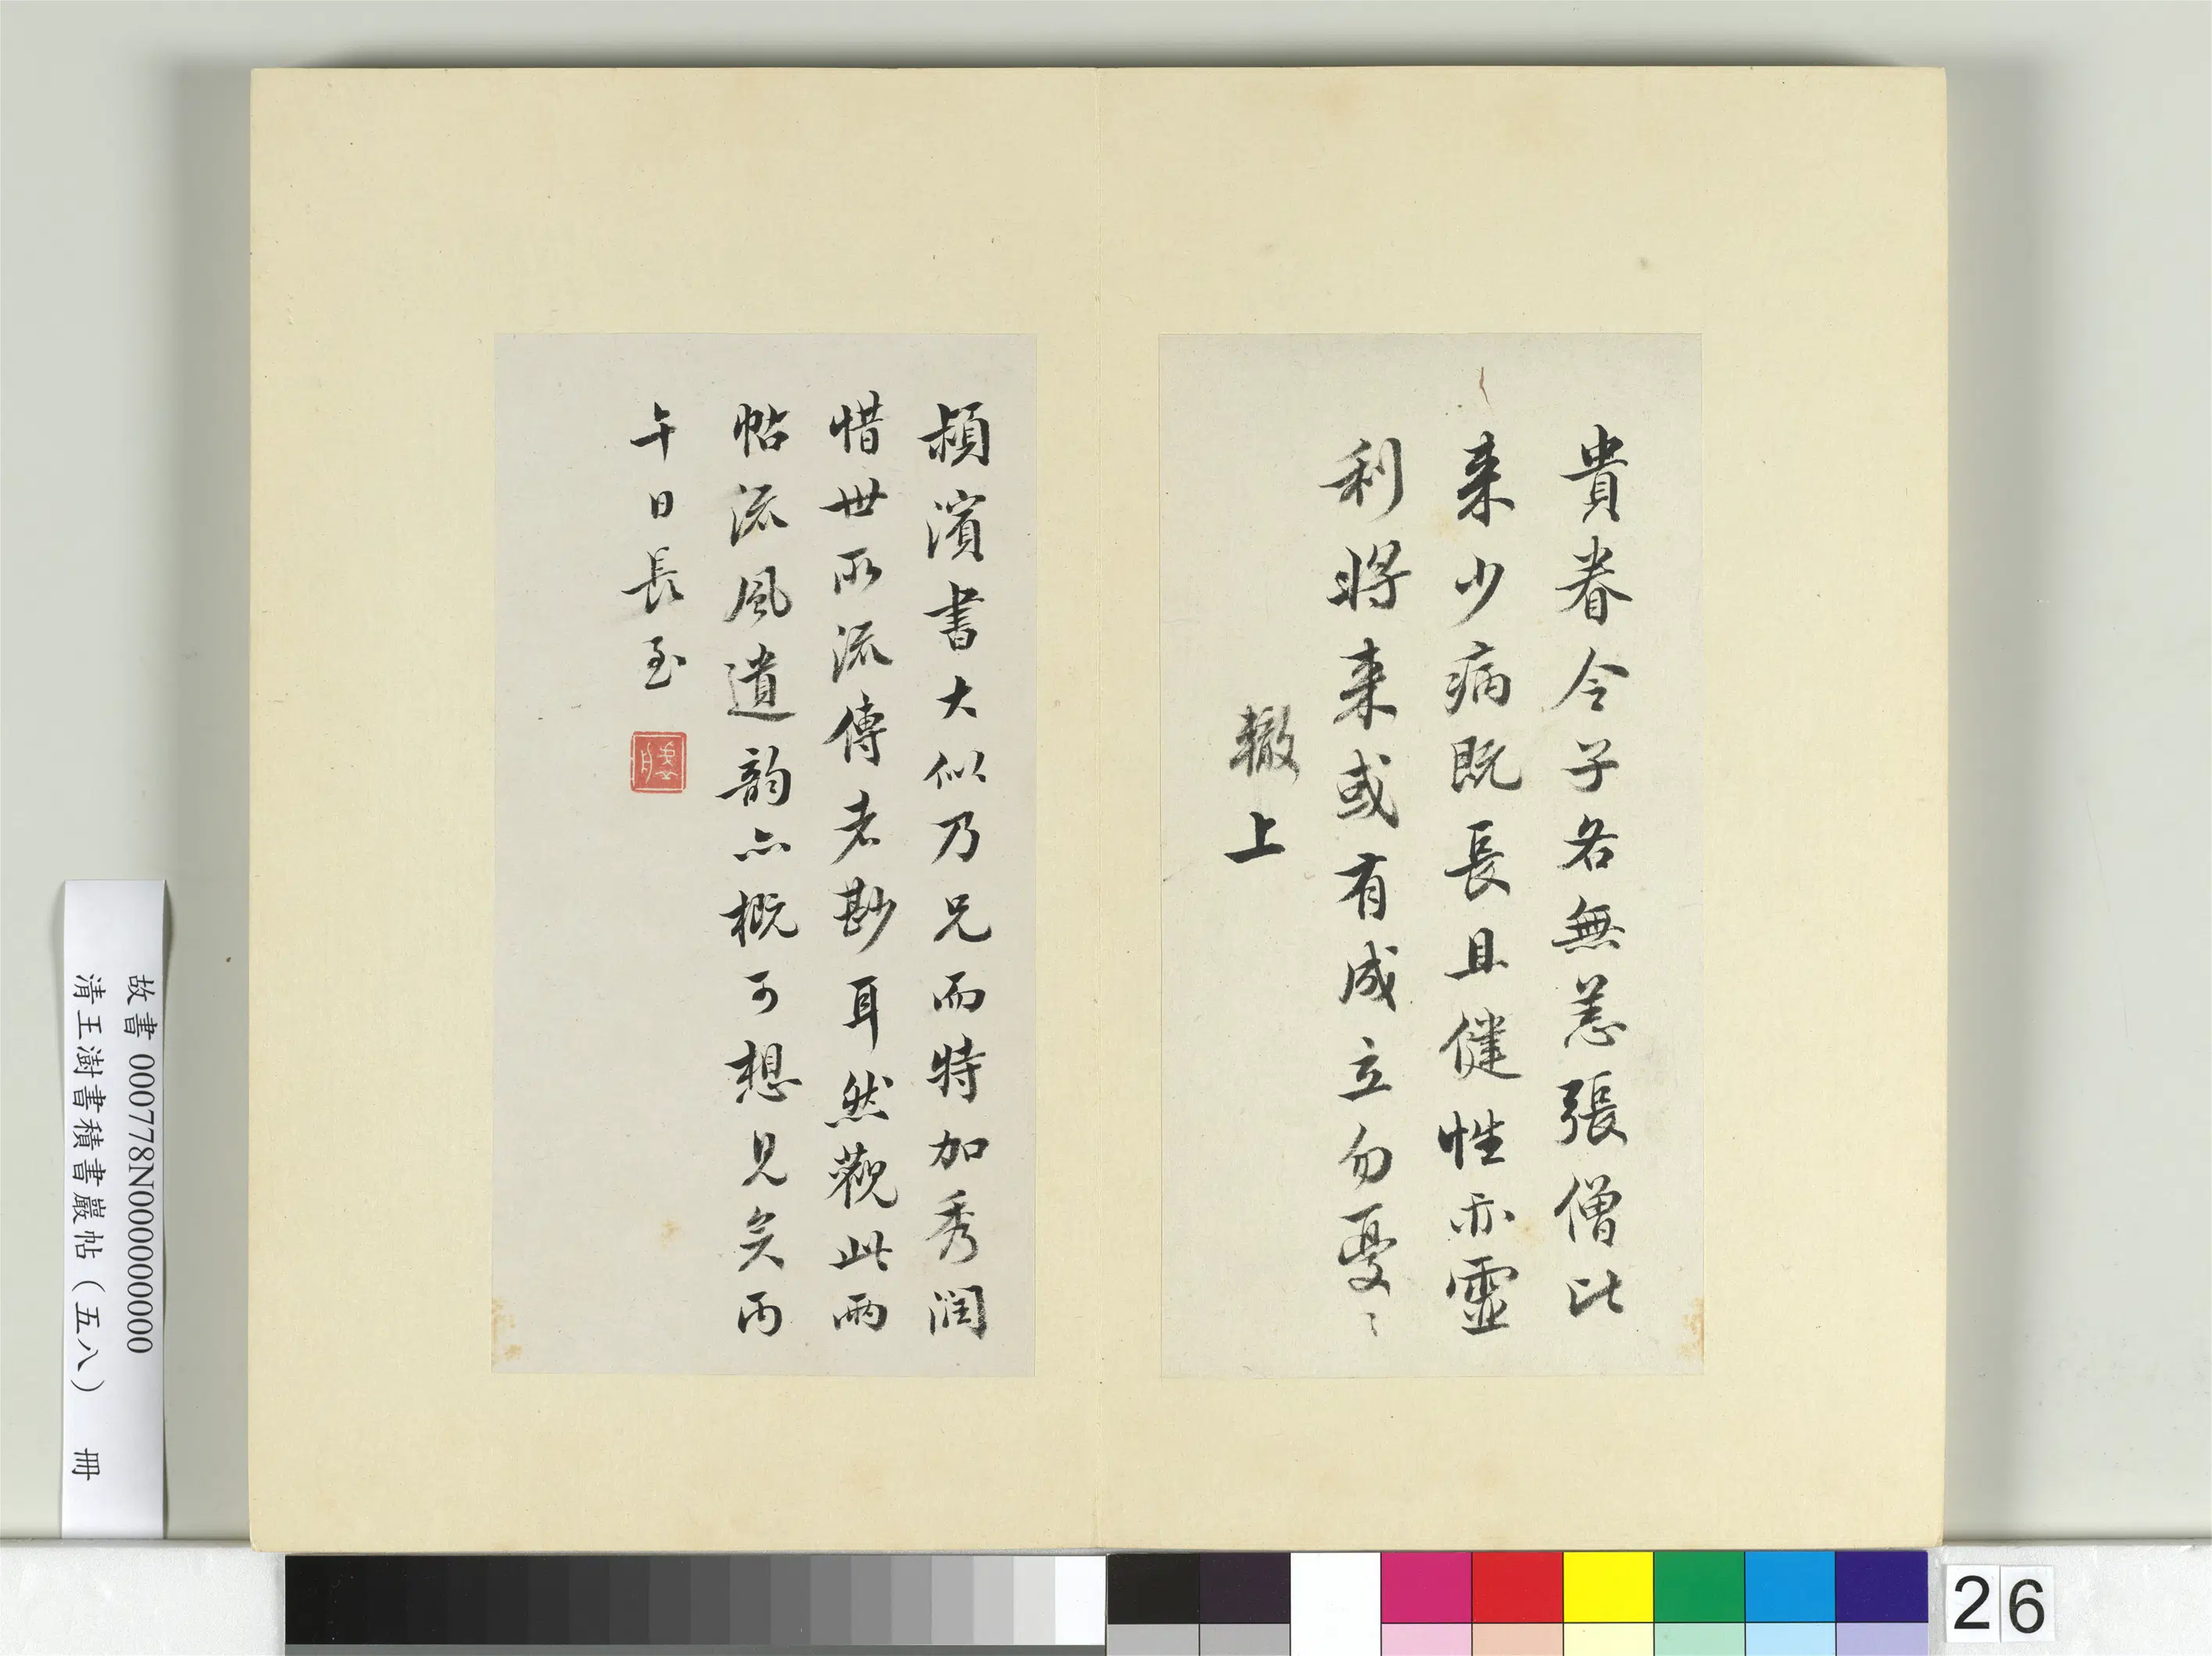 貴眷令子各無恙張僧比
来少病既長且健性亦靈
利将来或有成立勿憂〻
轍上
潁濱書大似乃兄而特加秀潤
惜世所流傳者尠耳然觀此兩
帖流風遺韵亦概可想見矣丙
午日長至
故書 000778N000000000
清王澍書積書巖帖（五八） 冊
26